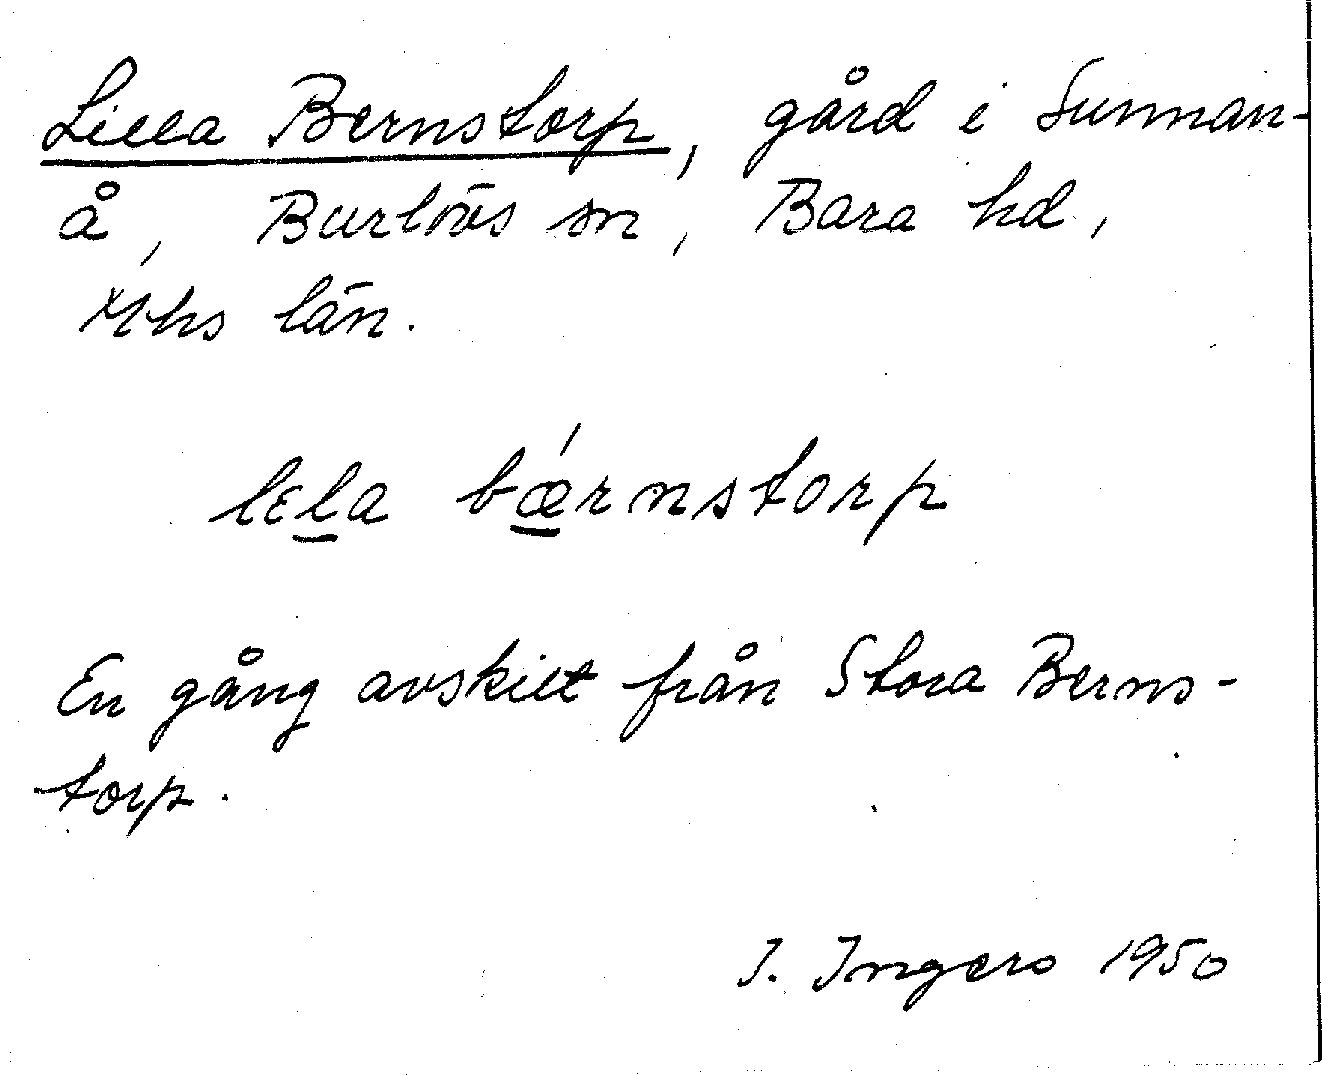 Lilla Bernstorp, gård i Sunnan-
å, Burlövs sn, Bara hd,
Mhs län.
lɛla bǽrnstorp
En gång avskilt från Stora Berns-
torp.
I. Ingers 1950